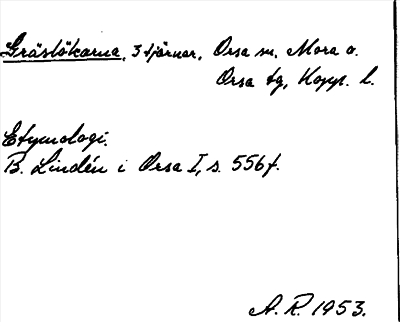 Gräslökarna, 3 tjärnar, Orsa sn, Mora o.
Orsa tg, Kopp. l.
Etymologi.
B. Lindén i Orsa I, s. 556f.
A. R. 1953.